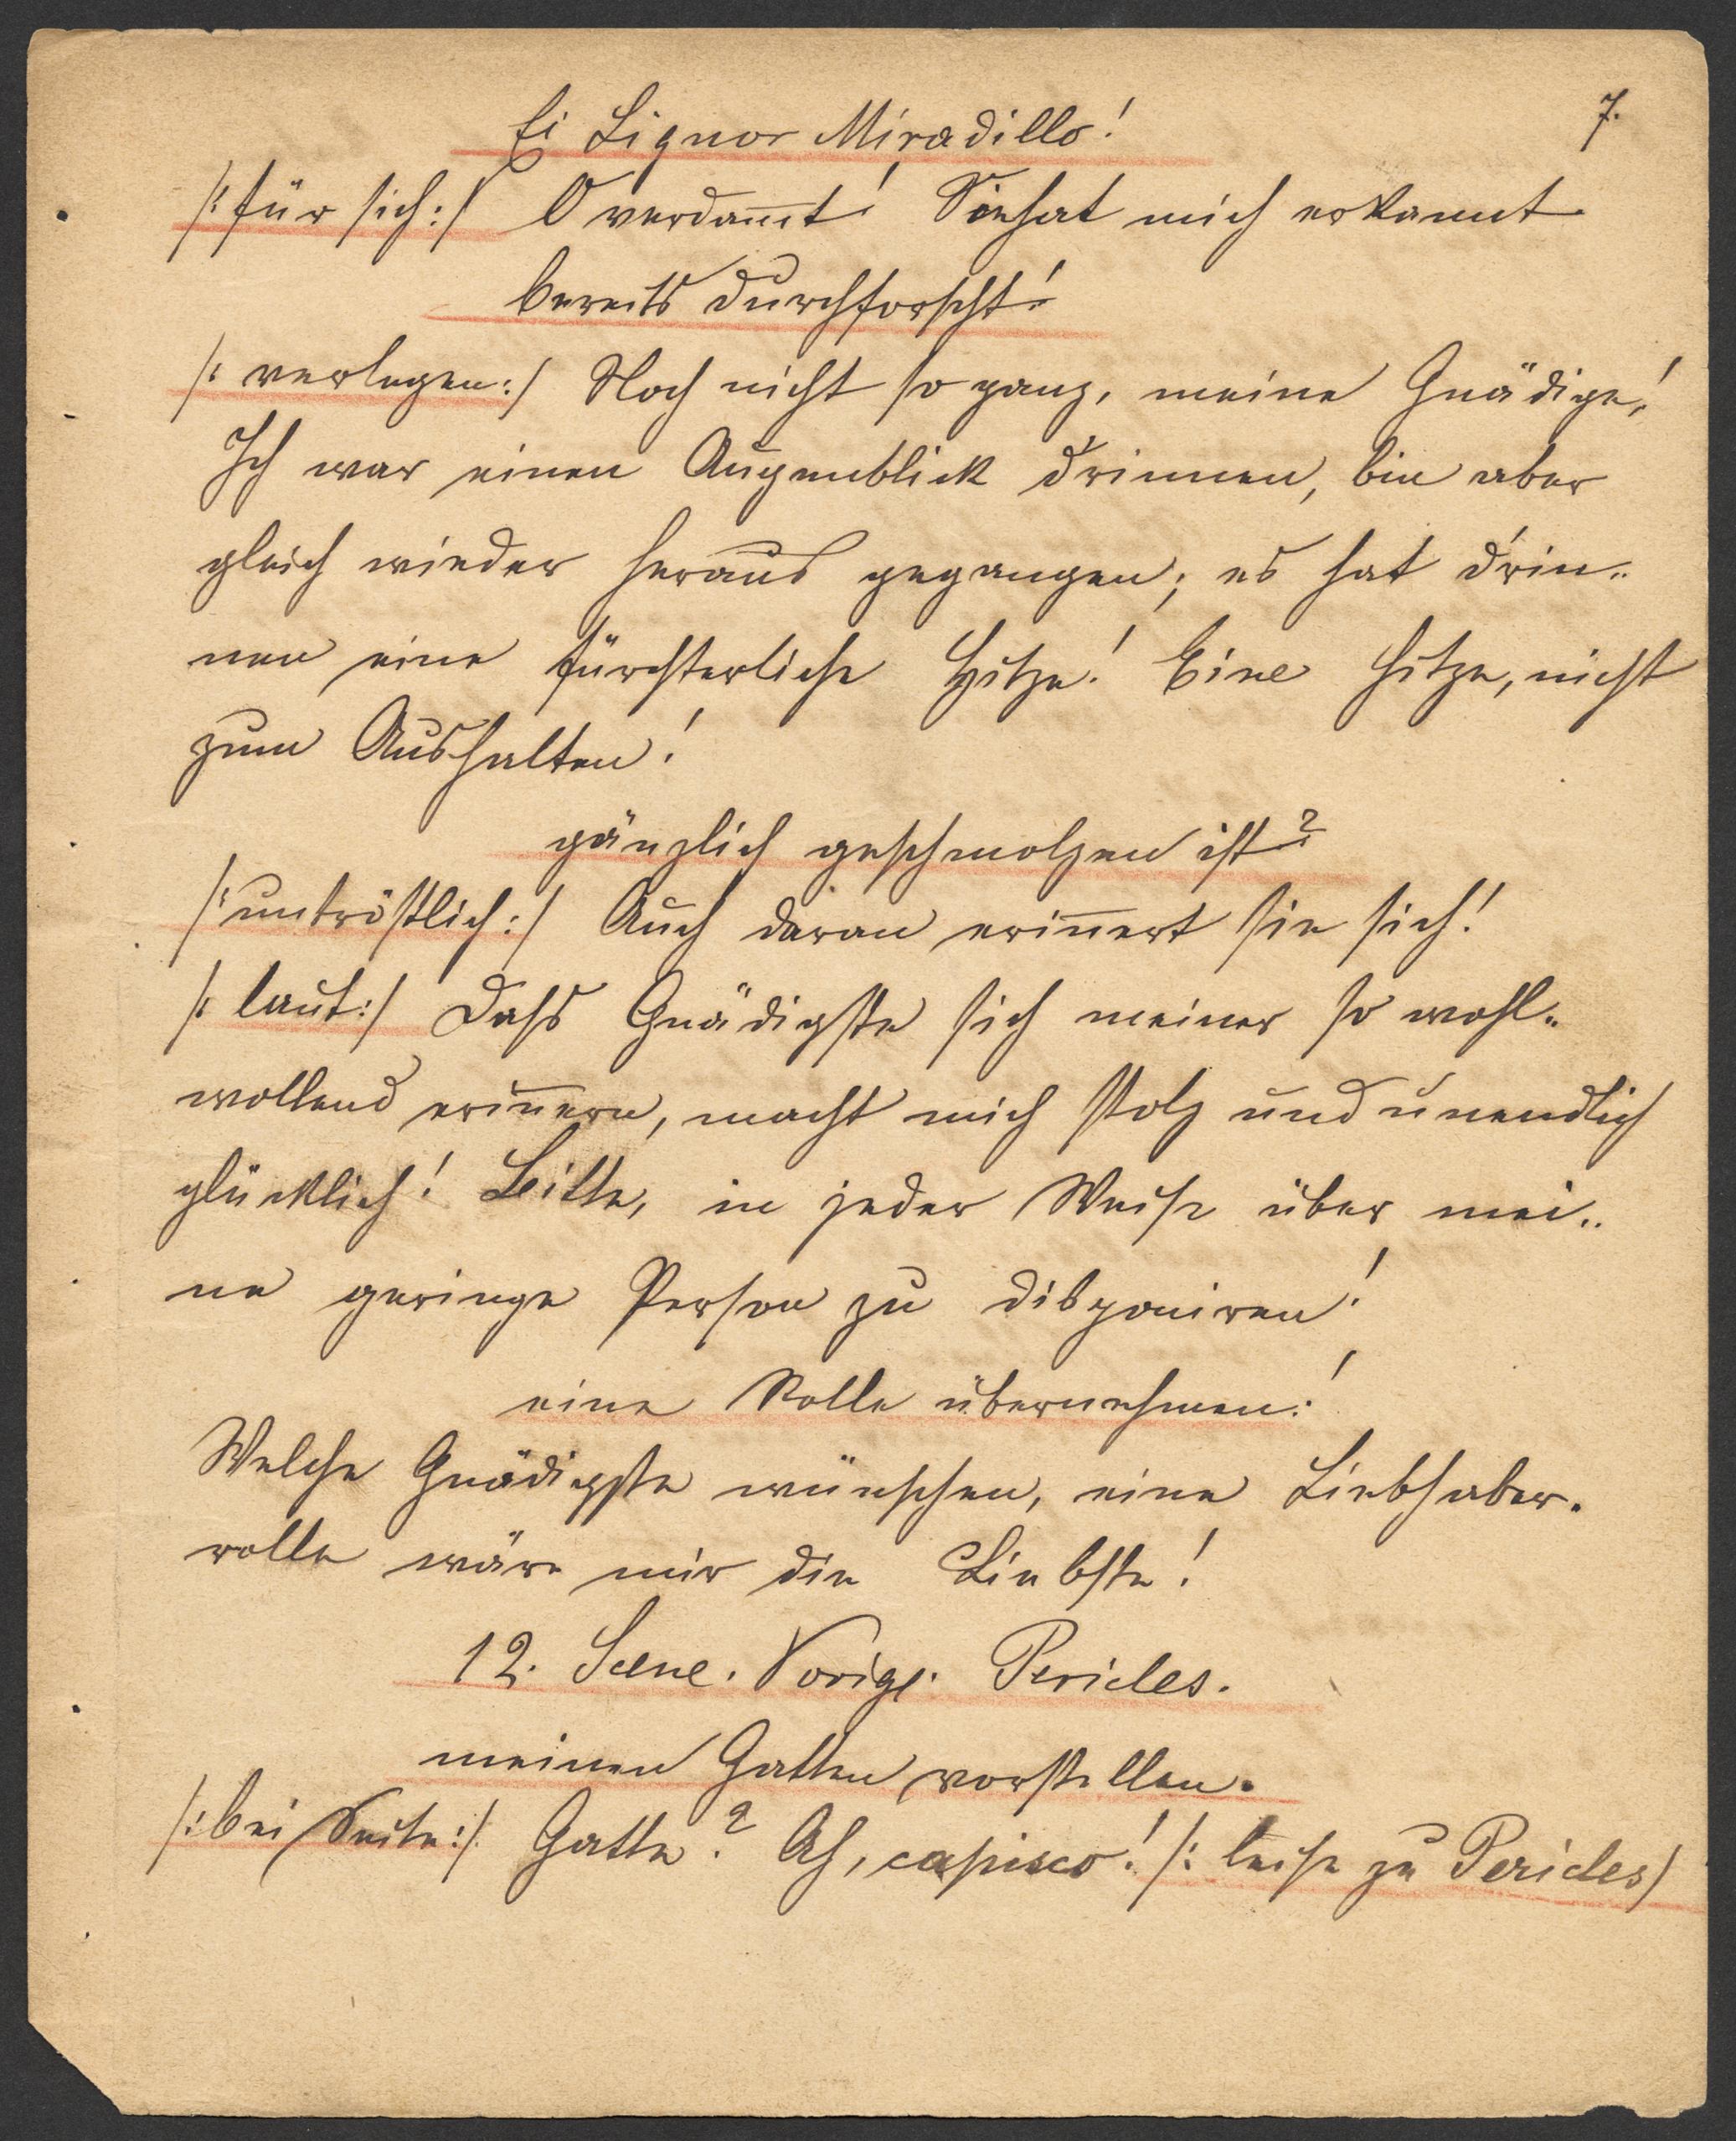 7.
Ei Signor Miradillo!
/: für sich :/ O verdam̅t! Sie hat mich erkannt
bereits durchforscht!
/: verlegen :/ Noch nicht so ganz, meine Gnädige!
Ich war einen Augenblick drinnen, bin aber
gleich wieder heraus gegangen; es hat d'rin-
nen eine fürchterliche Hitze! Eine Hitze, nicht
zum Aushalten!
gänzlich geschmolzen ist?
/: untröstlich :/ Auch daran erin̅ert sie sich!
/: laut :/ Dass Gnädigste sich meiner so wohl-
wollend erin̅ern, macht mich stolz und unendlich
glücklich! Bitte, in jeder Weise über mei-
ne geringe Person zu disponiren!
eine Rolle übernehmen!
Welche Gnädigste wünschen, eine Liebhaber-
rolle wäre mir die Liebste!
12. Scene. Vorige. Pericles.
meinen Gatten vorstellen.
/: bei Seite :/ Gatte? Ah, capisco! /: leise zu Pericles /